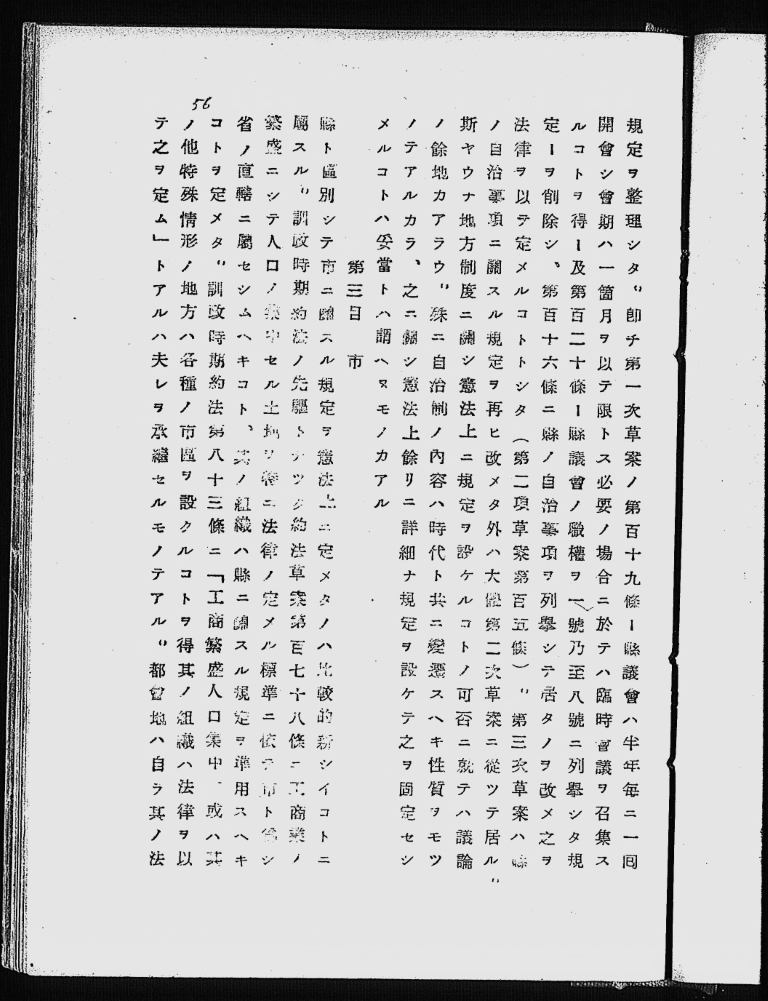 規定ヲ整理シタ〃卽チ第一次草案ノ第百十九條ー縣議會ハ半年每ニ一囘
開會シ會期ハ一箇月ヲ以テ限トス必要ノ場合ニ於テハ臨時會議ヲ召集ス
ルコトヲ得ー及第百二十條ー縣議會ノ職權ヲ一號乃至八號ニ列擧シタ規
定ーヲ削除シ、第百十六條ニ縣ノ自治事項ヲ列擧シテ居タノヲ改メ之ヲ
法律ヲ以テ定メルコトトシタ（第二項草案第百五條）〃第三次草案ハ縣
ノ自治事項ニ關スル規定ヲ再ヒ改メタ外ハ大體第二次草案ニ從ツテ居ル〃
斯ヤウナ地方制度ニ關シ憲法上ニ規定ヲ設ケルコトノ可否ニ就テハ議論
ノ餘地カアラウ〃殊ニ自治制ノ內容ハ時代ト共ニ變遷スヘキ性質ヲモツ
ノテアルカラ、之ニ關シ憲法上餘リニ詳細ナ規定ヲ設ケテ之ヲ固定セシ
メルコトハ妥當トハ謂ヘヌモノカアル
第三目　市
縣ト區別シテ市ニ關スル規定ヲ憲法上ニ定メタノハ比較的新シイコトニ
屬スル〃訓政時期約法ノ先驅トナツタ約法草案第百七十八條ニ工商業ノ
繁盛ニシテ人口ノ集中セル土地ヲ特ニ法律ノ定メル標準ニ依テ市ト爲シ
省ノ直轄ニ屬セシムヘキコト、其ノ組織ハ縣ニ關スル規定ヲ準用スヘキ
コトヲ定メタ〃訓政時期約法第八十三條ニ「工商繁盛人口集中、或ハ其
ノ他特殊情形ノ地方ハ各種ノ市區ヲ設クルコトヲ得其ノ組織ハ法律ヲ以
テ之ヲ定ム」トアルハ夫レヲ承繼セルモノテアル〃都會地ハ自ラ其ノ法
56